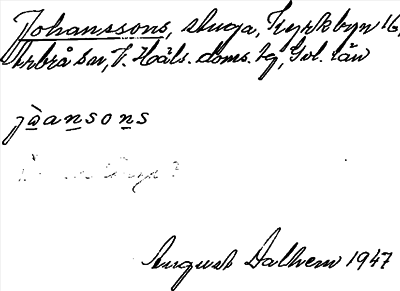 Johanssons, stuga, Kyrkbyn 16,
Arbrå sn, V. Häls. doms. tg, Gvl. län
jòansons
August Dalhem 1947